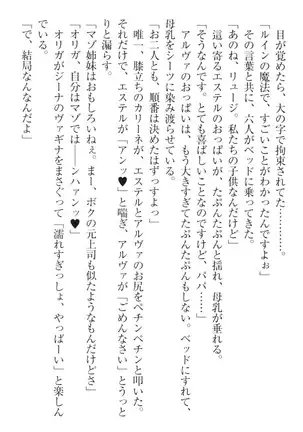 目が覚めたら、大の字で拘束されてた………。
「ルインの魔法で、すごいことがわかったんですよぉ」
その言葉と共に、六人がベッドに乗ってきた。
「あのね、リュージ。私たちの子供なんだけど」
這い寄るエステルのおっぱいが、たぷんと揺れ、母乳が垂れる。
「そうなんです。とても喜ばしいことなのですけど、パパ……」
アルヴァのおっぱいは、もう大きすぎてたぷんたぷんもしない。ベッドにすでに、
母乳をシーツに染み渡らせている。
「お二人とも、順番は決めたはずっすよっ」
唯一、膝立ちのカリーネが、エステルとアルヴァのお尻をペチンペチンと叩いた。
それだけで、エステルが「アンっ♥」と喘ぎ、アルヴァが「ごめんなさい」とうっと
「マゾ姉妹はおもしろいねぇ。まー、ボクの元上司も似たようなもんだけどさ」
「オリガ、自分はマゾでは――ンハァンッ♥」
オリガがジーナのヴァギナをまさぐって「濡れすぎっしょ、やっばーい」と楽しん
「で、結局なんなんだよ」